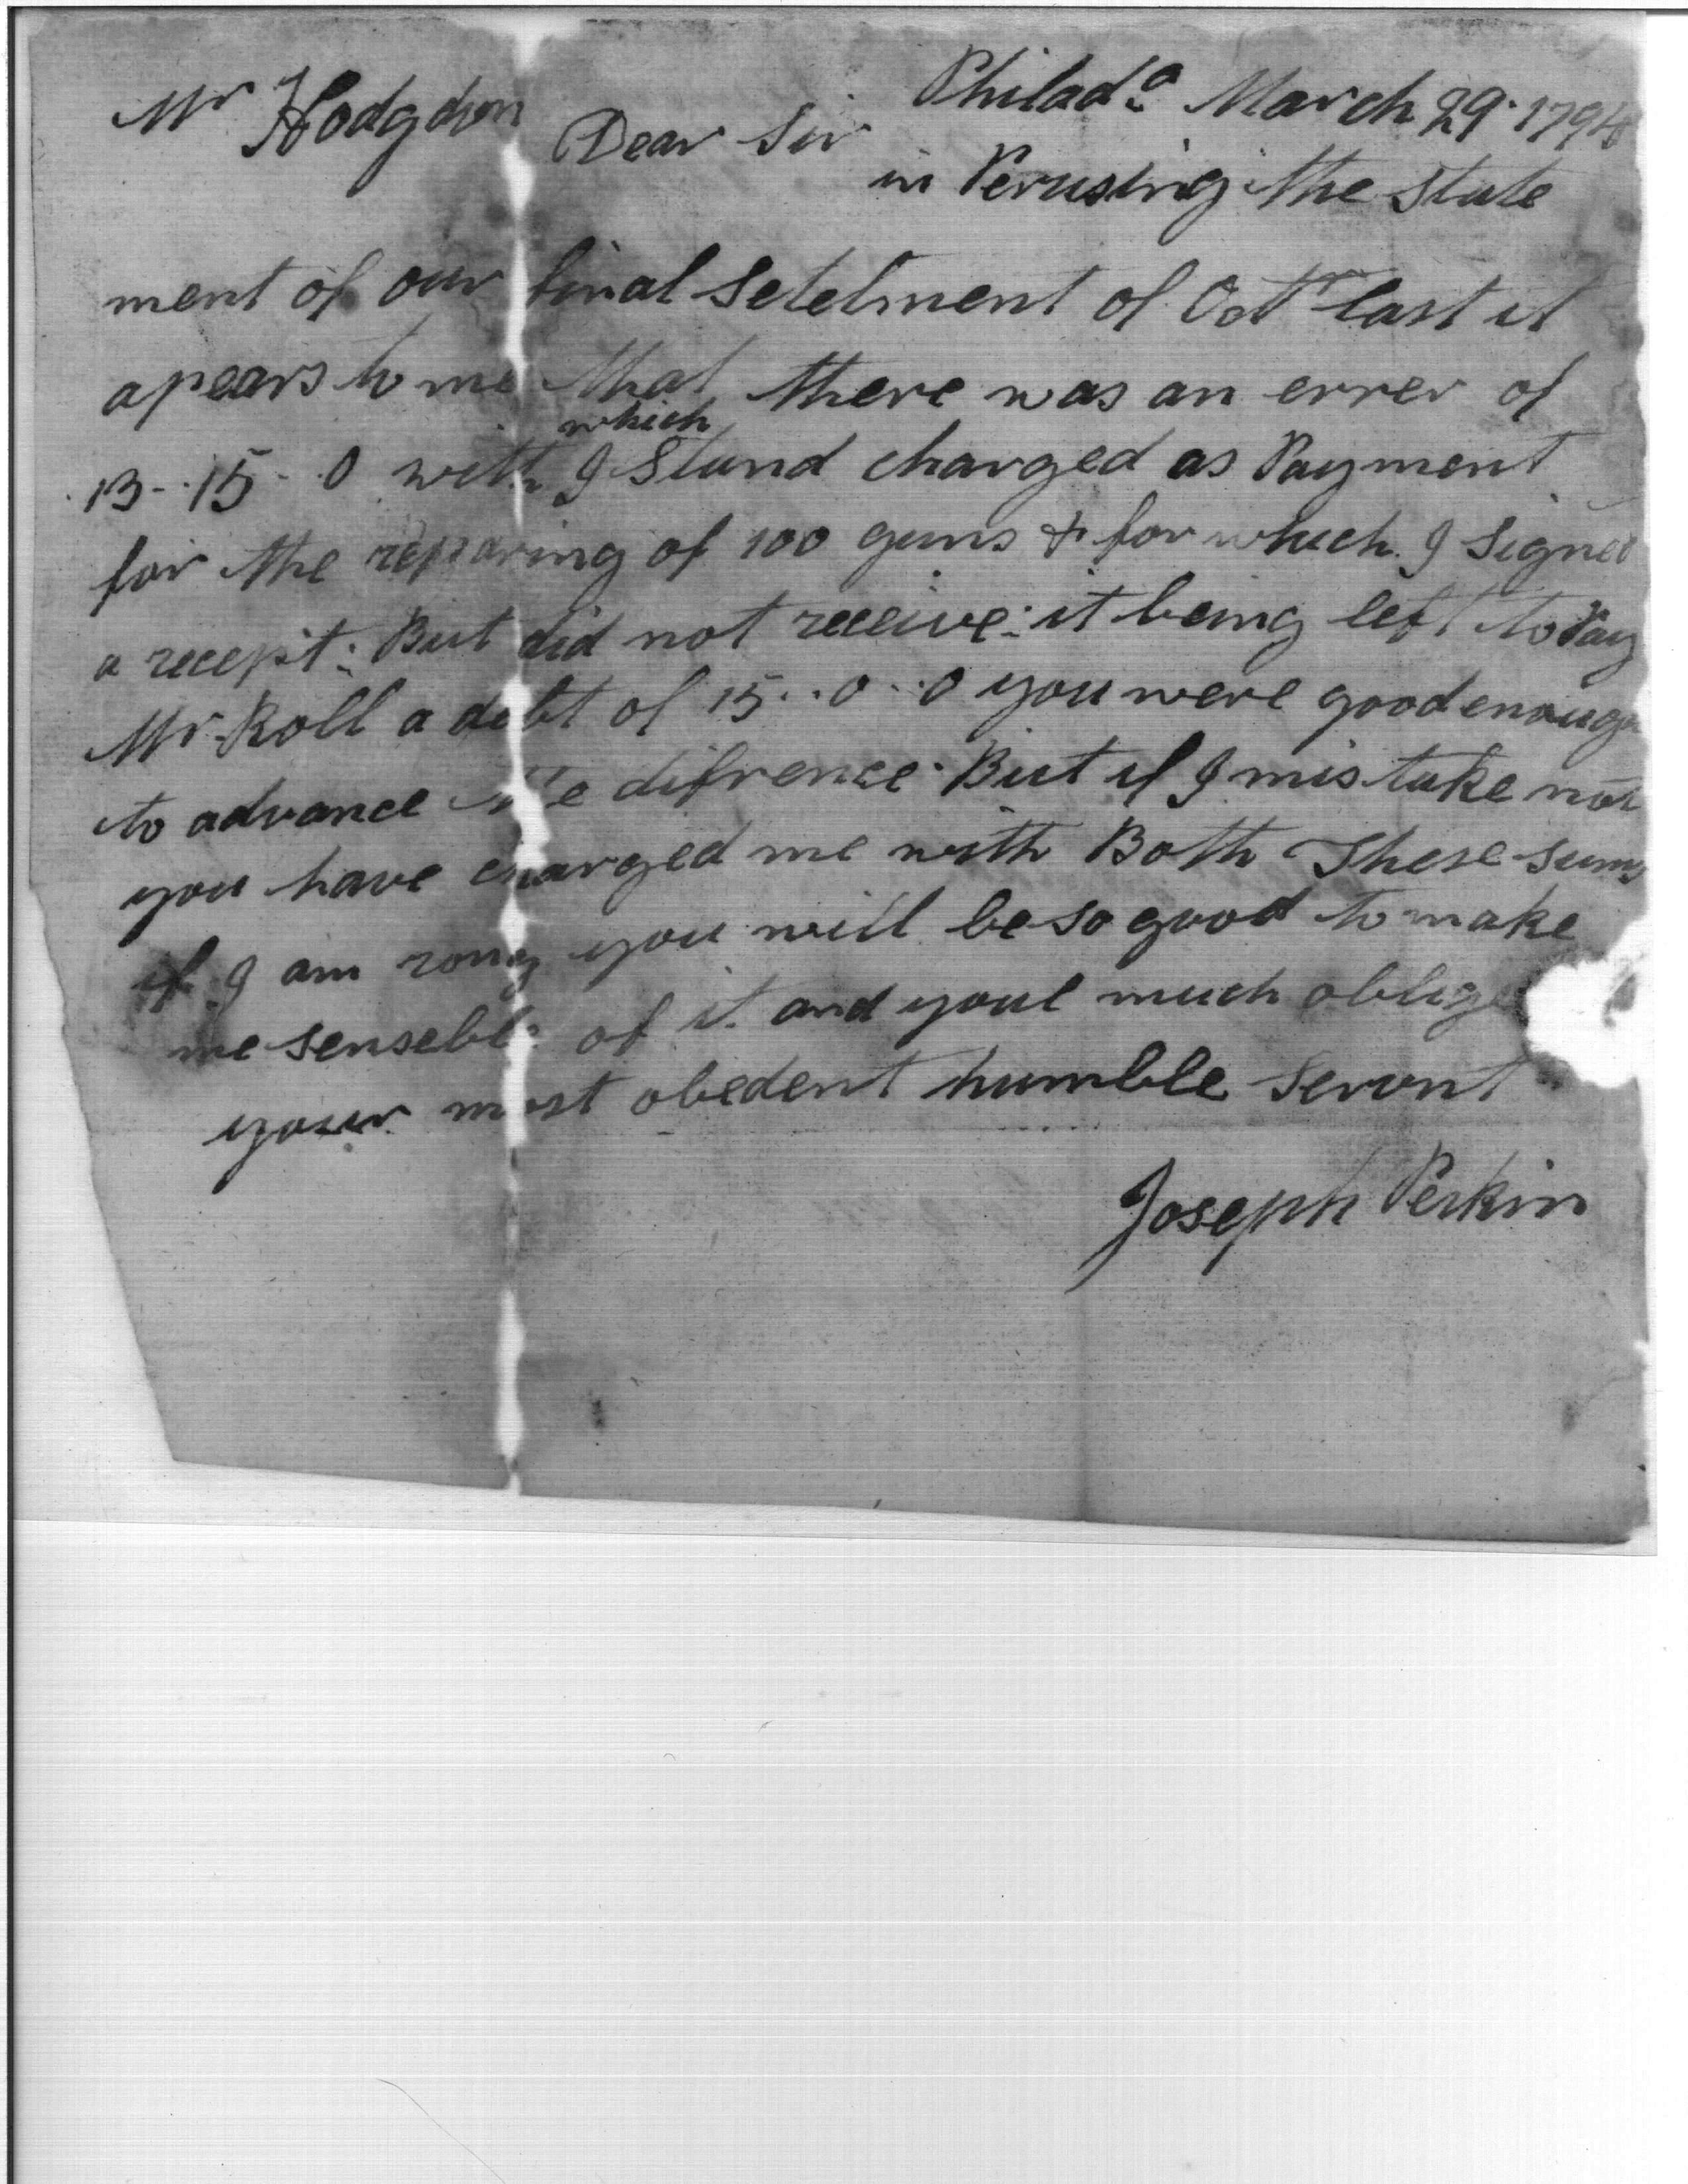 Philad.a March 29. 1794
Mr Hodgdon
Dear Sir
in Perusing the State
ment of our final Setelment of Octr last it
apears to me that there was an errer of
which
13..15..0 with I Stand charged as Payment
for the reparing of 100 guns & for which I Signed
a recept: But did not receive: it being left to Pay
Mr Roll a debt of 15..0..0 you were good enough
to advance the difrence. But if I mistake not
you have charged me with Both These sums
if I am rong you will be so good to make
me senseble of it. and youl much oblige
your most obedent humble Servnt
Joseph Perkin